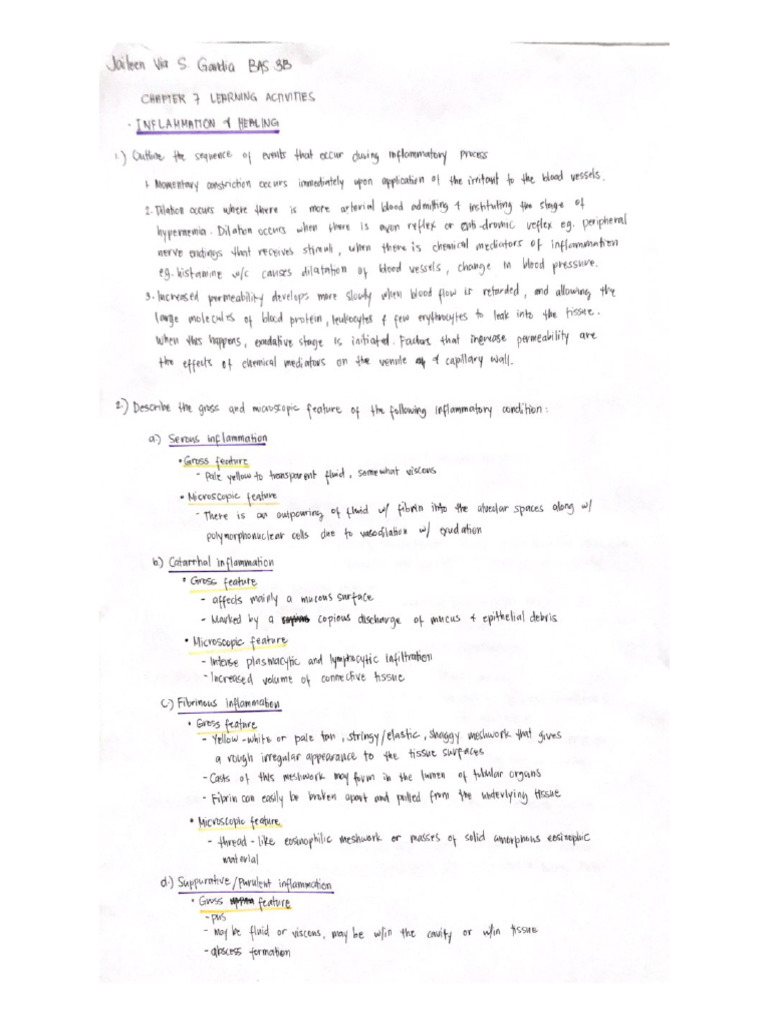 Jaileen Via S. Gandia BAS 3B
CHAPTER 7 LEARNING ACTIVITIES
• INFLAMMATION & HEALING
1.) Outline the sequence of events that occur during inflammatory process
1. Momentary constriction occurs immediately upon application of the irritant to the blood vessels.
2. Dilation occurs where there is more arterial blood admitting & instituting the stage of
hyperemia. Dilation occurs when there is axon reflex or anti-dromic reflex eg. peripheral
nerve endings that receives stimuli, when there is chemical mediators of inflammation
eg. histamine w/c causes dilatation of blood vessels, change in blood pressure.
3. Increased permeability develops more slowly when blood flow is retarded, and allowing the
large molecules of blood protein, leukocytes & few erythrocytes to leak into the tissue.
When this happens, exudative stage is initiated. Factors that increase permeability are
the effects of chemical mediators on the venule & capillary wall.
2.) Describe the gross and microscopic feature of the following inflammatory condition:
a.) Serous inflammation
• Gross feature
- Pale yellow to transparent fluid, somewhat viscous
• Microscopic feature
- There is an outpouring of fluid w/ fibrin into the alveolar spaces along w/
polymorphonuclear cells due to vasodilation w/ exudation
b.) Catarrhal inflammation
• Gross feature
- affects mainly a mucous surface
- Marked by a copious discharge of mucus & epithelial debris
• Microscopic feature
- Intense plasmacytic and lymphocytic infiltration
- Increased volume of connective tissue
c.) Fibrinous inflammation
• Gross feature
- Yellow-white or pale tan, stringy/elastic, shaggy meshwork that gives
a rough irregular appearance to the tissue surfaces
- Casts of this meshwork may form in the lumen of tubular organs
- Fibrin can easily be broken apart and pulled from the underlying tissue
• Microscopic feature
- thread-like eosinophilic meshwork or masses of solid amorphous eosinophilic
material
d.) Suppurative/Purulent inflammation
• Gross feature
- pus
- may be fluid or viscous, may be w/in the cavity or w/in tissue
- abscess formation